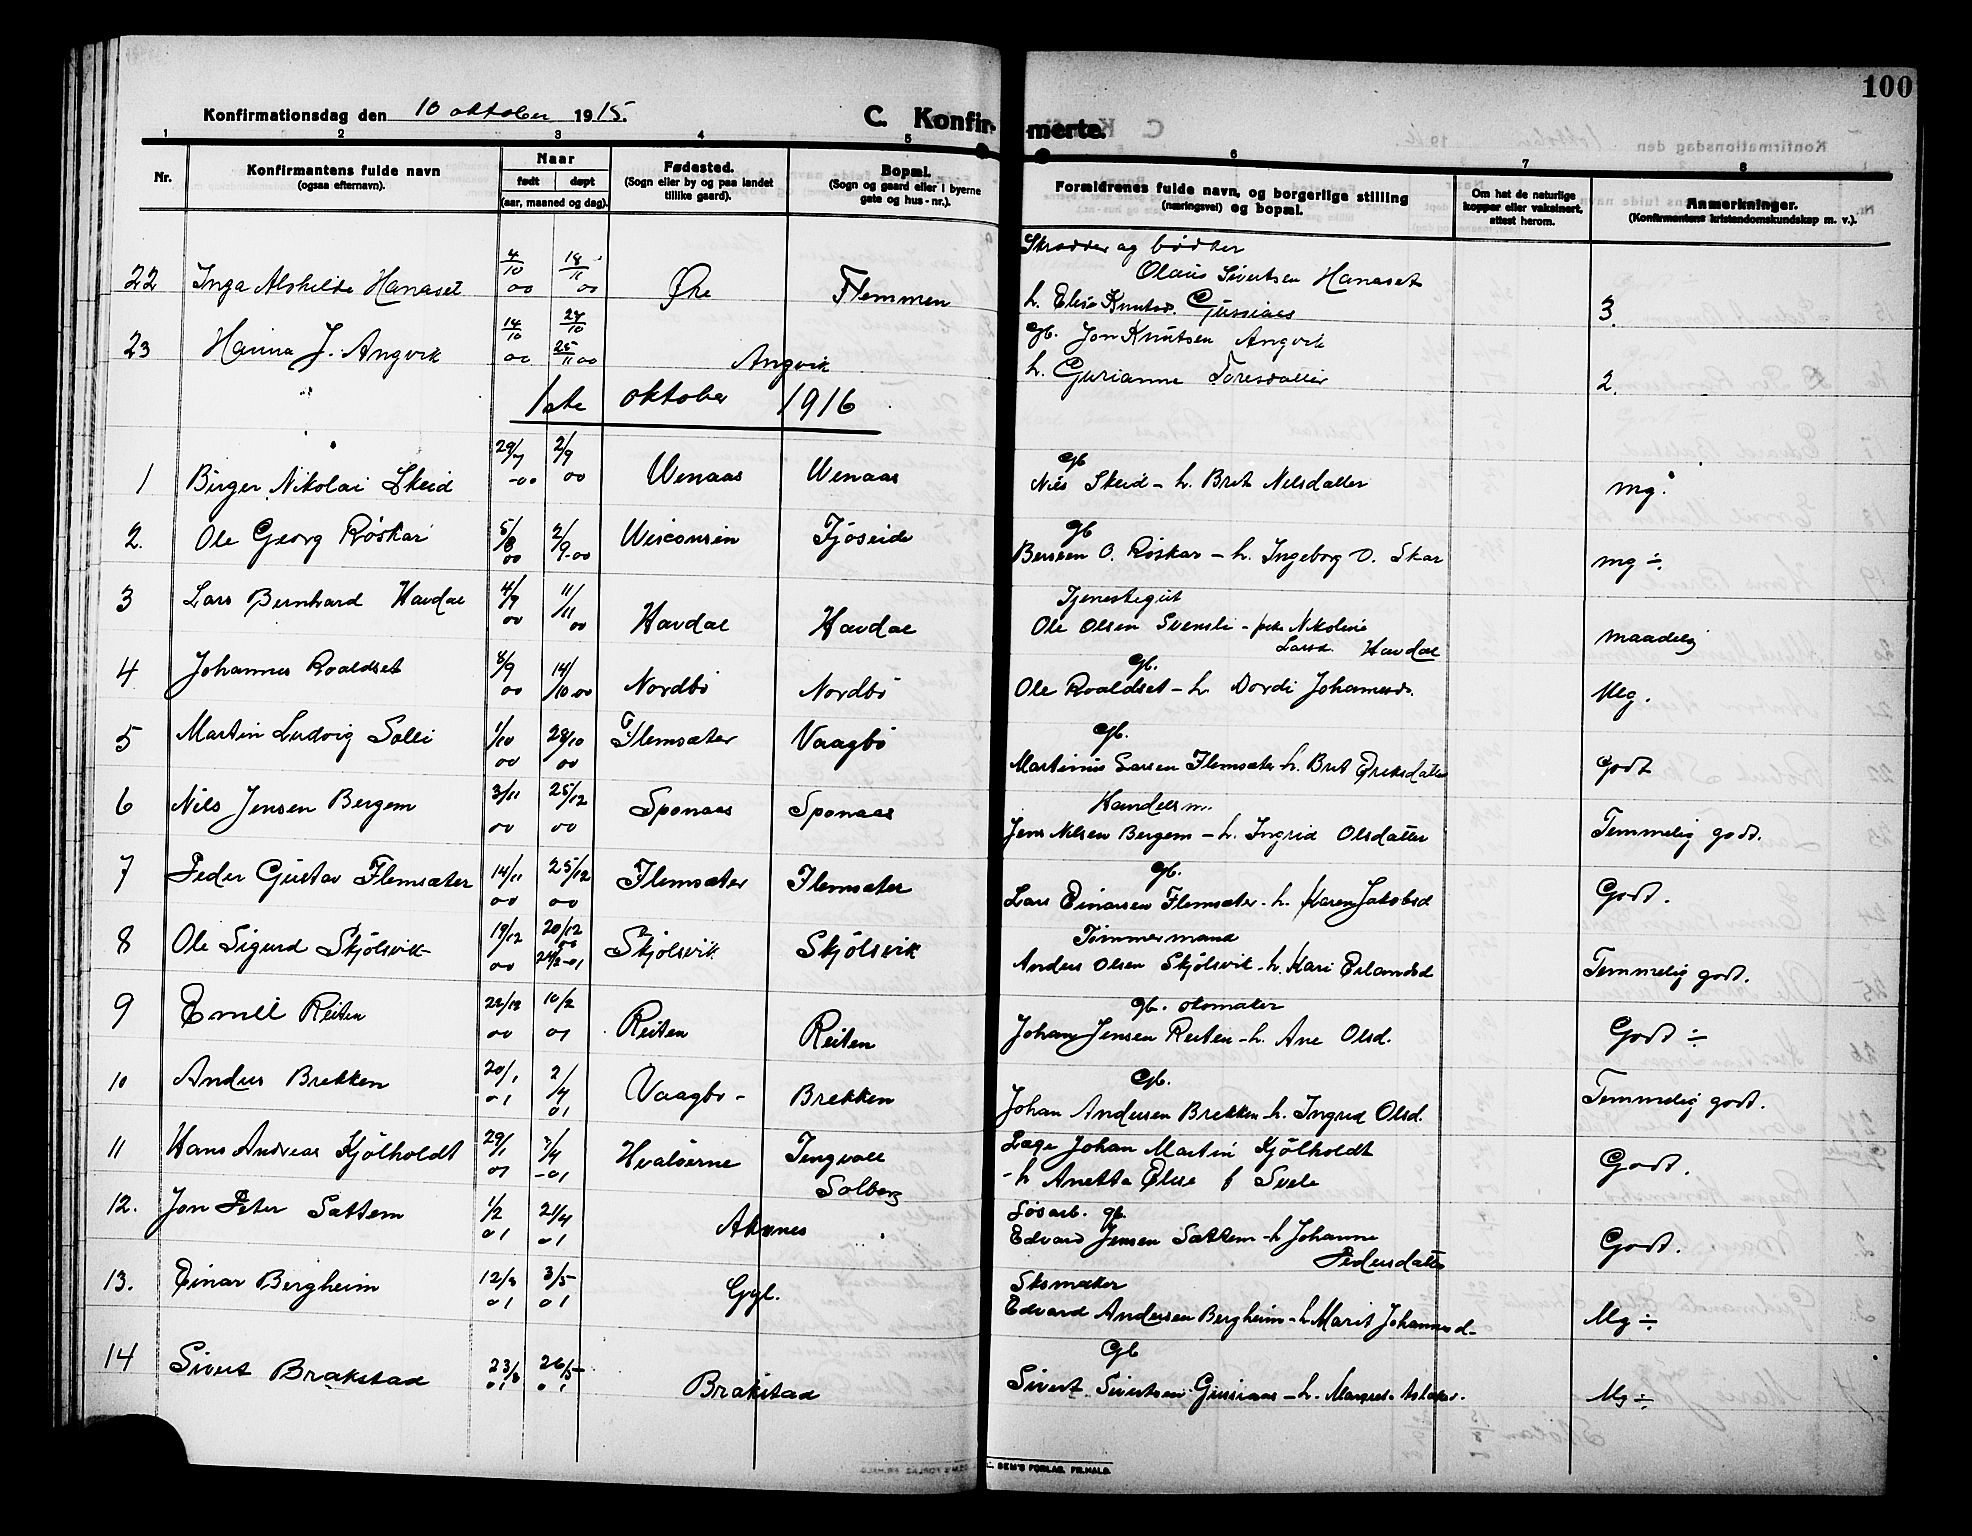 100
Konfirmationsdag den 10 oktober 1915.
C. Konfirmerte.
1 2 3 4 5 6 7 8
Nr.
Konfirmantens fulde navn
(ogsaa efternavn).
Naar
født døpt
(aar, maaned og dag).
Fødested.
(Sogn eller by og paa landet
tillike gaard).
Bopæl.
(Sogn og gaard eller i byerne
gate og hus-nr.).
Forældrenes fulde navn, og borgerlige stilling
(næringsvei) og bopæl.
Om hat de naturlige
kopper eller vaksinert,
attest herom.
Anmerkninger.
(Konfirmantens kristendomskundskap m. v.).
22 Inga Alvhilde Hanaset 4/10 00 18/11 00 Øre Flemmen
Skrædder og bødker
Olaus Sivertsen Hanaset
h. Elise Knutsd. Gussiaas 3.
23 Hanna J. Angvik 14/10 00 24/10 25/11 00 Angvik
gb. Jon Knutsen Angvik
h. Gurianne Toresdatter 2.
1ste oktober 1916
1 Birger Nikolai Skeid 29/7 -00 2/9 00 Wenaas Wenaas
gb
Nils Skeid - h. Brit Nilsdatter mg.
2. Ole Georg Röskar 5/8 00 2/9-00 Wisconsin Tjöseide
gb
Berseen O. Röskar - h. Ingeborg O. Skar mg ÷
3 Lars Bernhard Havdal 4/9 00 11/11 00 Havdal Havdal
Tjenestegut
Ole Olsen Svensli - pike Nikoline
Larsd. Havdal maadelig
4 Johannes Roaldset 8/9 00 14/10 00 Nordbö Nordbö
gb.
Ole Roaldset - h. Dordi Johannesd. Meg.
5 Martin Ludvig Solli 1/10 00 28/10 00 Flemsæter Vaagbö
gb.
Martinus Larsen Flemsæter h. Brit Eriksdatter Godt
6 Nils Jensen Bergem 3/11 00 25/12 00 Sponaas Sponaas
Handelsm.
Jens Nilsen Bergem - h. Ingrid Olsdatter Temmelig godt.
7 Peder Gustav Flemsæter 14/11 00 25/12 00 Flemsæter Flemsæter
gb.
Lars Einarsen Flemsæter - h. Karen Jakobsd Godt.
8 Ole Sigurd Skjölsvik 19/12 00 20/12 00 24/2-01 Skjölsvik Skjölsvik
Tömmermand
Anders Olsen Skjölsvik - h. Kari Erlandsd Temmelig godt.
9 Emil Reiten 22/12 00 10/2 01 Reiten Reiten
gb. skomaker
Johan Jensen Reiten - h. Ane Olsd. Godt ÷
10 Anders Brekken 20/1 01 2/4 01 Vaagbö - Brekken
Gb.
Johan Andersen Brekken - h. Ingrid Olsd. Temmelig godt.
11 Hans Andreas Kjölholdt 29/1 01 7/4 -01 Hvalöerne Tingvoll
Solberg
Læge Johan Martin Kjölholdt
- h Anetta Elise f Svele Godt.
12. Jon Peter Sættem 1/2 01 21/4 01 Aksnes
Løsarb. gb.
Edvard Jensen Sættem - h Johanne
Pedersdatter Godt.
13. Einar Bergheim 12/3 01 3/5- 01 Gyl.
Skomaker
Edvard Andersen Bergheim - h Marit Johannesd- Mg ÷
14 Sivert Brakstad 23/3 01 26/5- 01 Brakstad
Gb
Sivert Sivertsen Gussiaas - h. Mg ÷
SEM'S FORLAG. FR.HALD.